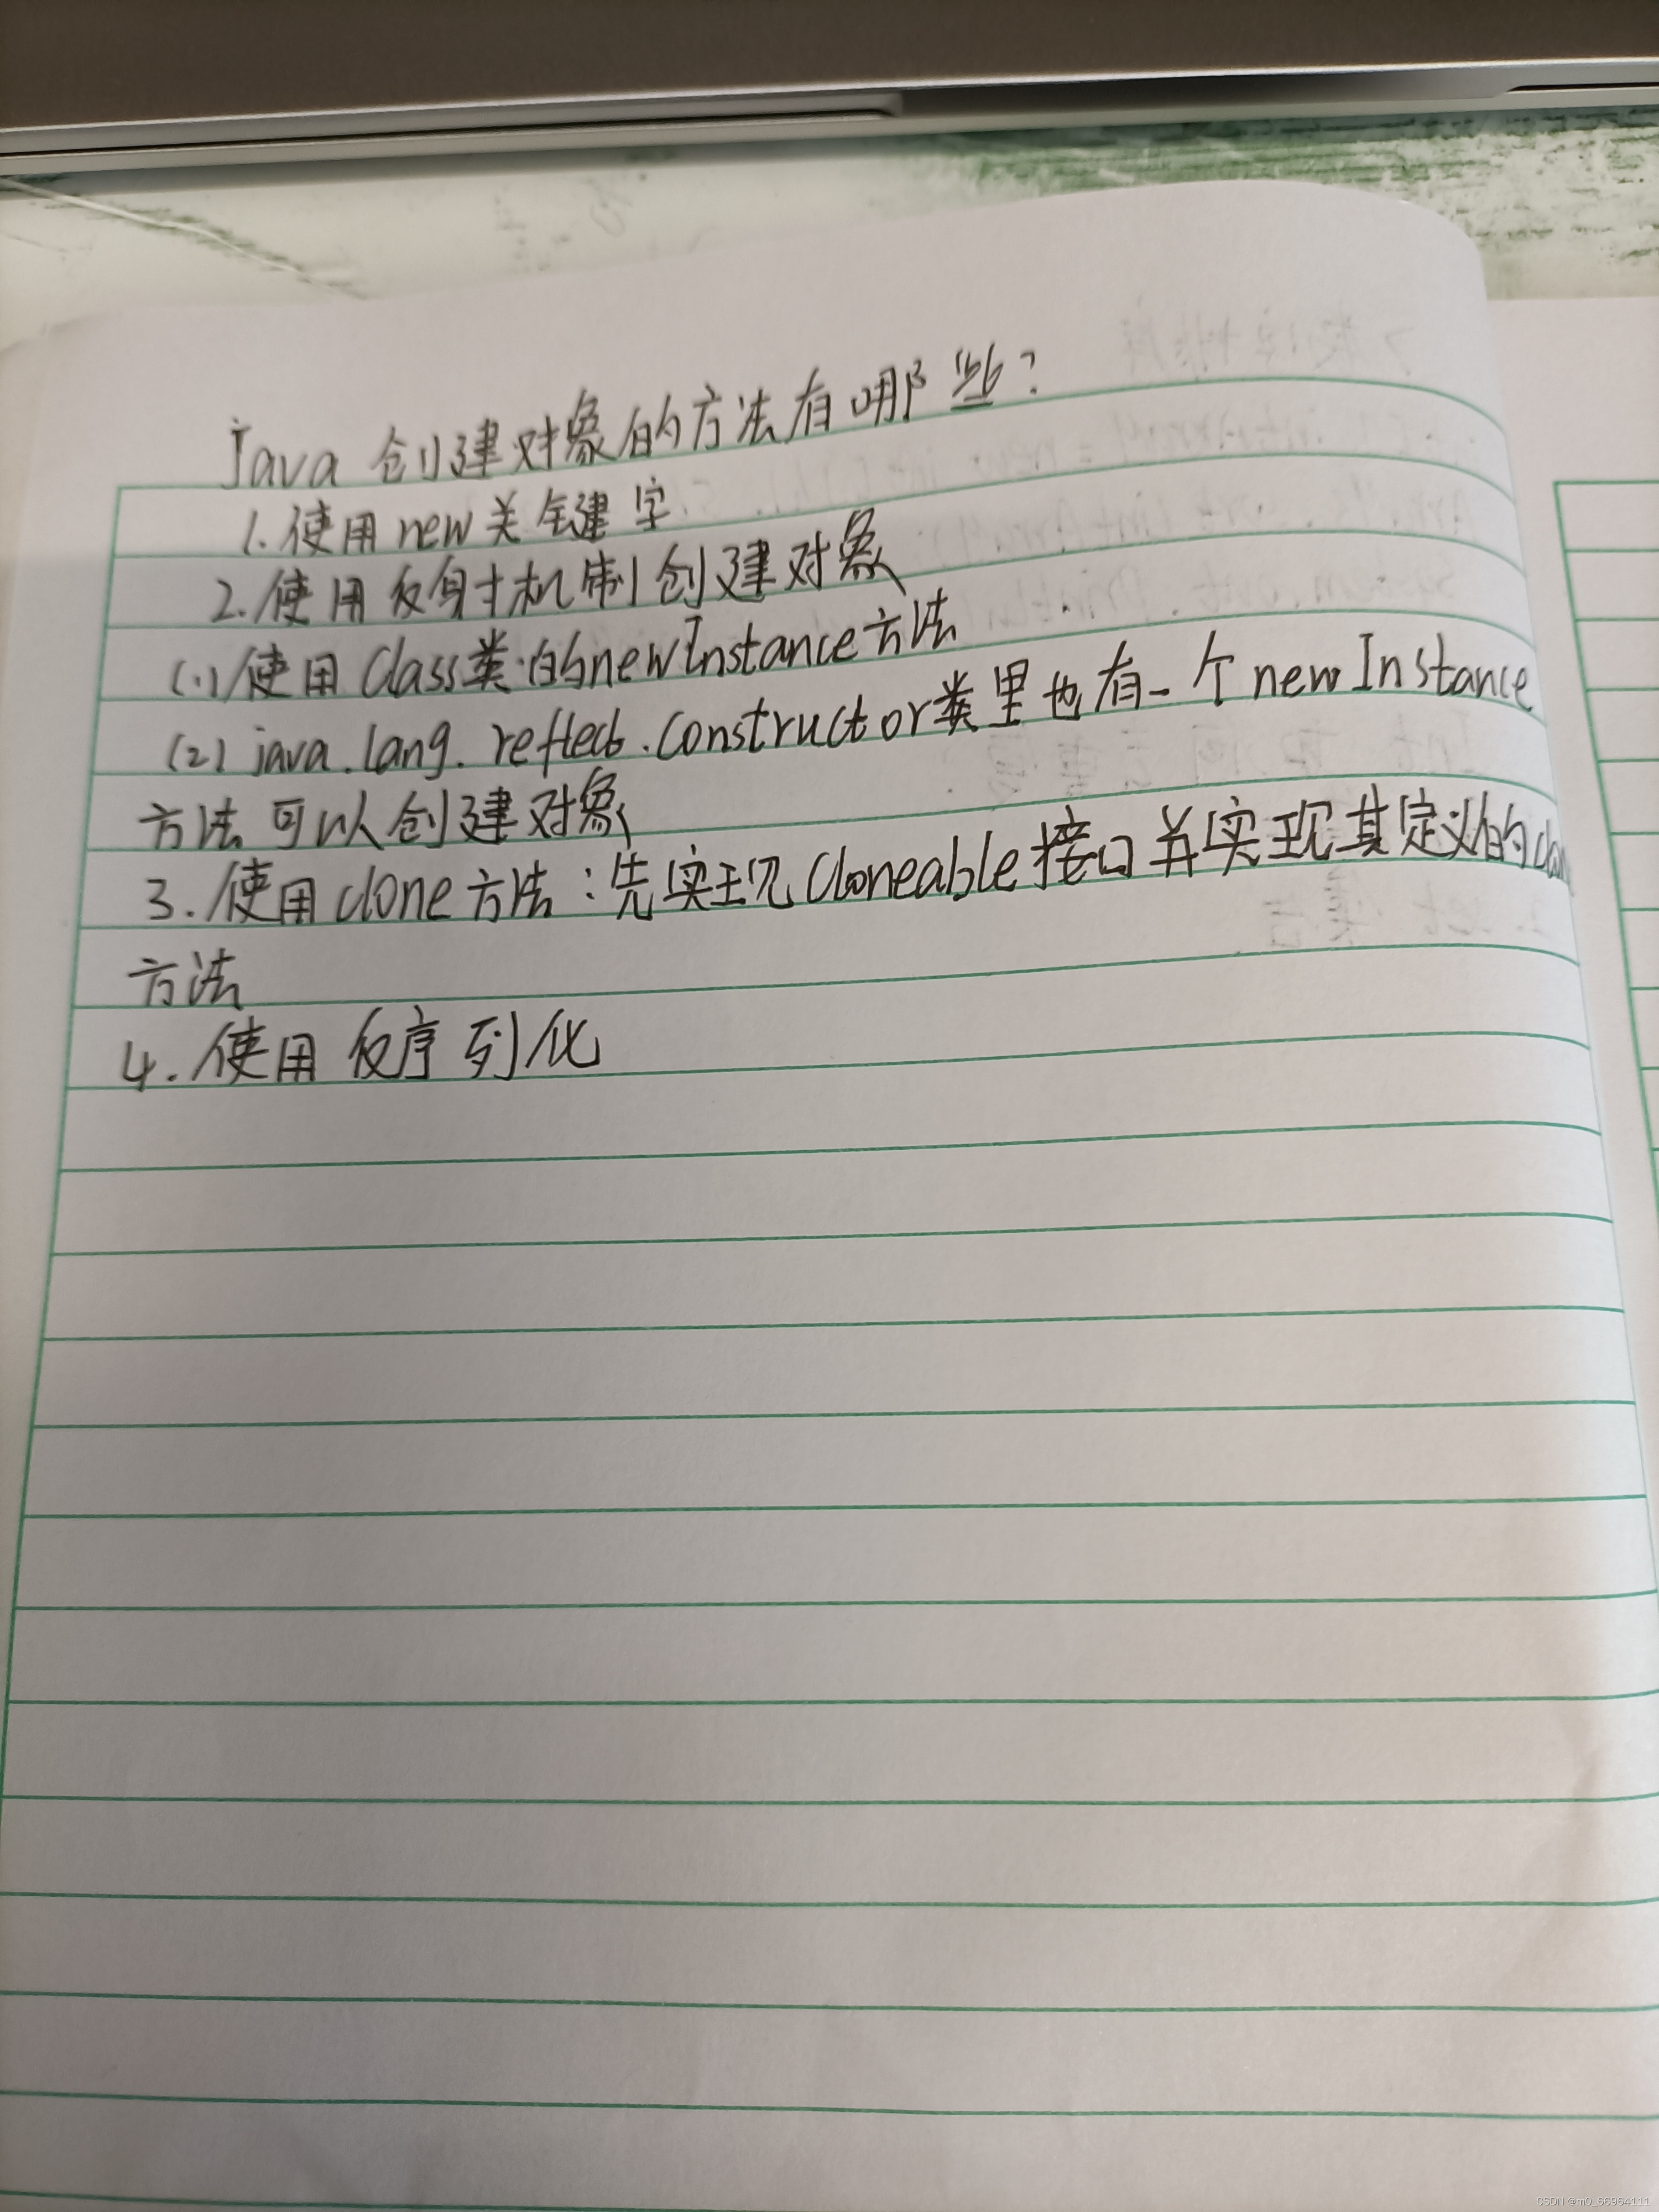 java 创建对象的方法有哪些?
1.使用new关键字
2.使用反射机制创建对象
(1)使用Class类的newInstance方法
(2)java.lang.reflect.constructor类里也有一个newInstance
方法可以创建对象
3.使用clone方法:先实现Cloneable接口并实现其定义的clone
方法
4.使用反序列化
CSDN @m0_66964111